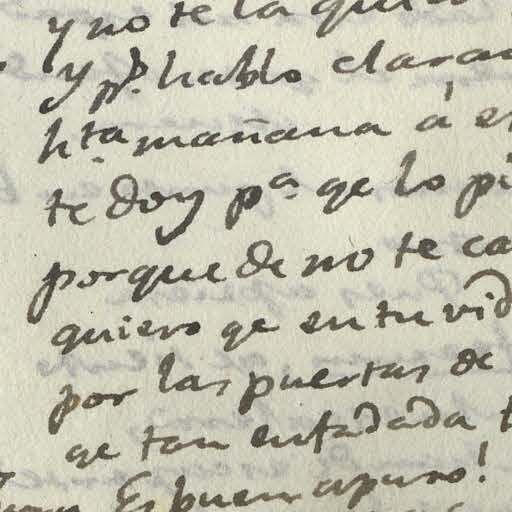 y no te la quie
y pr. hablo clara
hta. mañana á e
te doy pa. qe lo pi
porque de no te ca
quiero qe en tu vid
por las puertas de
qe tan enfadada t
Es buen apuro!